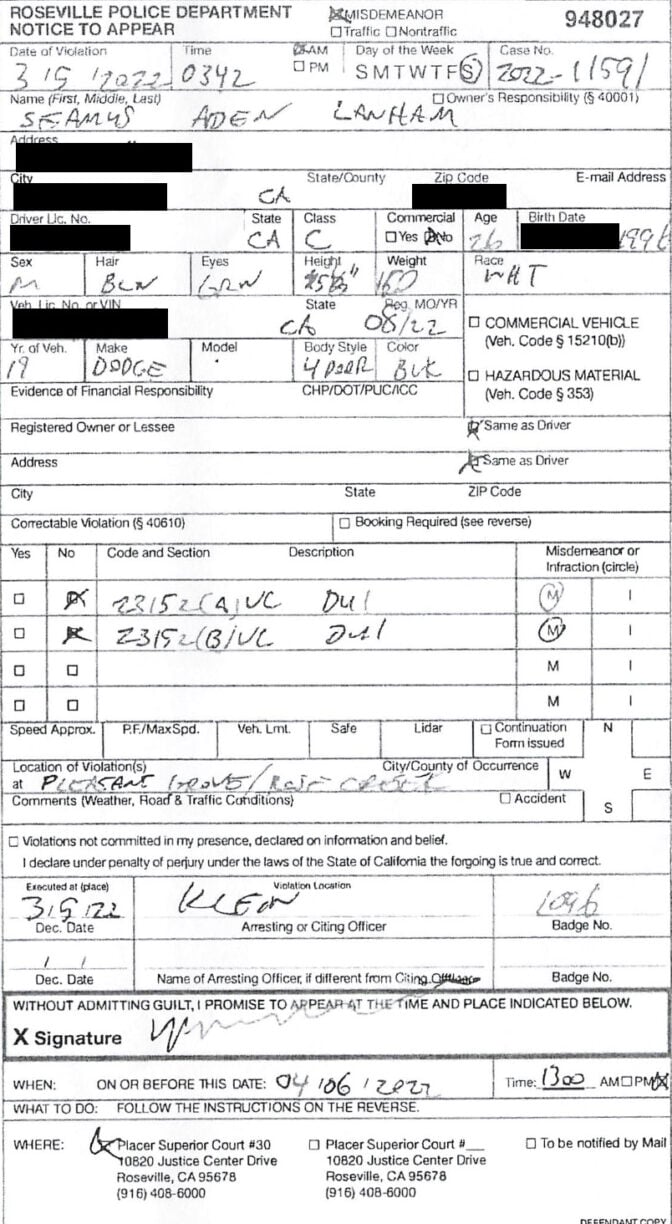 ROSEVILLE POLICE DEPARTMENT
NOTICE TO APPEAR
MISDEMEANOR
Traffic Nontraffic
948027
Date of Violation Time AM PM Day of the Week Case No.
3/5/2022 0342 S M T W T F S 2022-11591
Name (First, Middle, Last) Owner's Responsibility (§ 40001)
SEAMUS ADEN LANHAM
Address
City State/County Zip Code E-mail Address
CA
Driver Lic. No. State Class Commercial Age Birth Date
CA C Yes No 26 1996
Sex Hair Eyes Height Weight Race
M BLN GRN 160 WHT
Veh. Lic. No. or VIN State Reg. MO/YR
CA 08/22
COMMERCIAL VEHICLE
(Veh. Code § 15210(b))
Yr. of Veh. Make Model Body Style Color
19 DODGE 4 DOOR BLK
HAZARDOUS MATERIAL
(Veh. Code § 353)
Evidence of Financial Responsibility CHP/DOT/PUC/ICC
Registered Owner or Lessee Same as Driver
Address Same as Driver
City State ZIP Code
Correctable Violation (§ 40610) Booking Required (see reverse)
Yes No Code and Section Description Misdemeanor or
Infraction (circle)
23152(A)VC DUI M I
23152(B)VC DUI M I
M I
M I
Speed Approx. P.F./MaxSpd. Veh. Lmt. Safe Lidar Continuation
Form issued
N
Location of Violation(s) City/County of Occurrence W E
at PLEASANT GROVE/
Comments (Weather, Road & Traffic Conditions) Accident S
Violations not committed in my presence, declared on information and belief.
I declare under penalty of perjury under the laws of the State of California the forgoing is true and correct.
Executed at (place) Violation Location
3/5/22 1096
Dec. Date Arresting or Citing Officer Badge No.
/ /
Dec. Date Name of Arresting Officer, if different from Citing Badge No.
WITHOUT ADMITTING GUILT, I PROMISE TO APPEAR AT THE TIME AND PLACE INDICATED BELOW.
X Signature
WHEN: ON OR BEFORE THIS DATE: 04/06/2022 Time: 1300 AM PM
WHAT TO DO: FOLLOW THE INSTRUCTIONS ON THE REVERSE.
WHERE: Placer Superior Court #30 Placer Superior Court #__ To be notified by Mail
10820 Justice Center Drive 10820 Justice Center Drive
Roseville, CA 95678 Roseville, CA 95678
(916) 408-6000 (916) 408-6000
DEFENDANT COPY